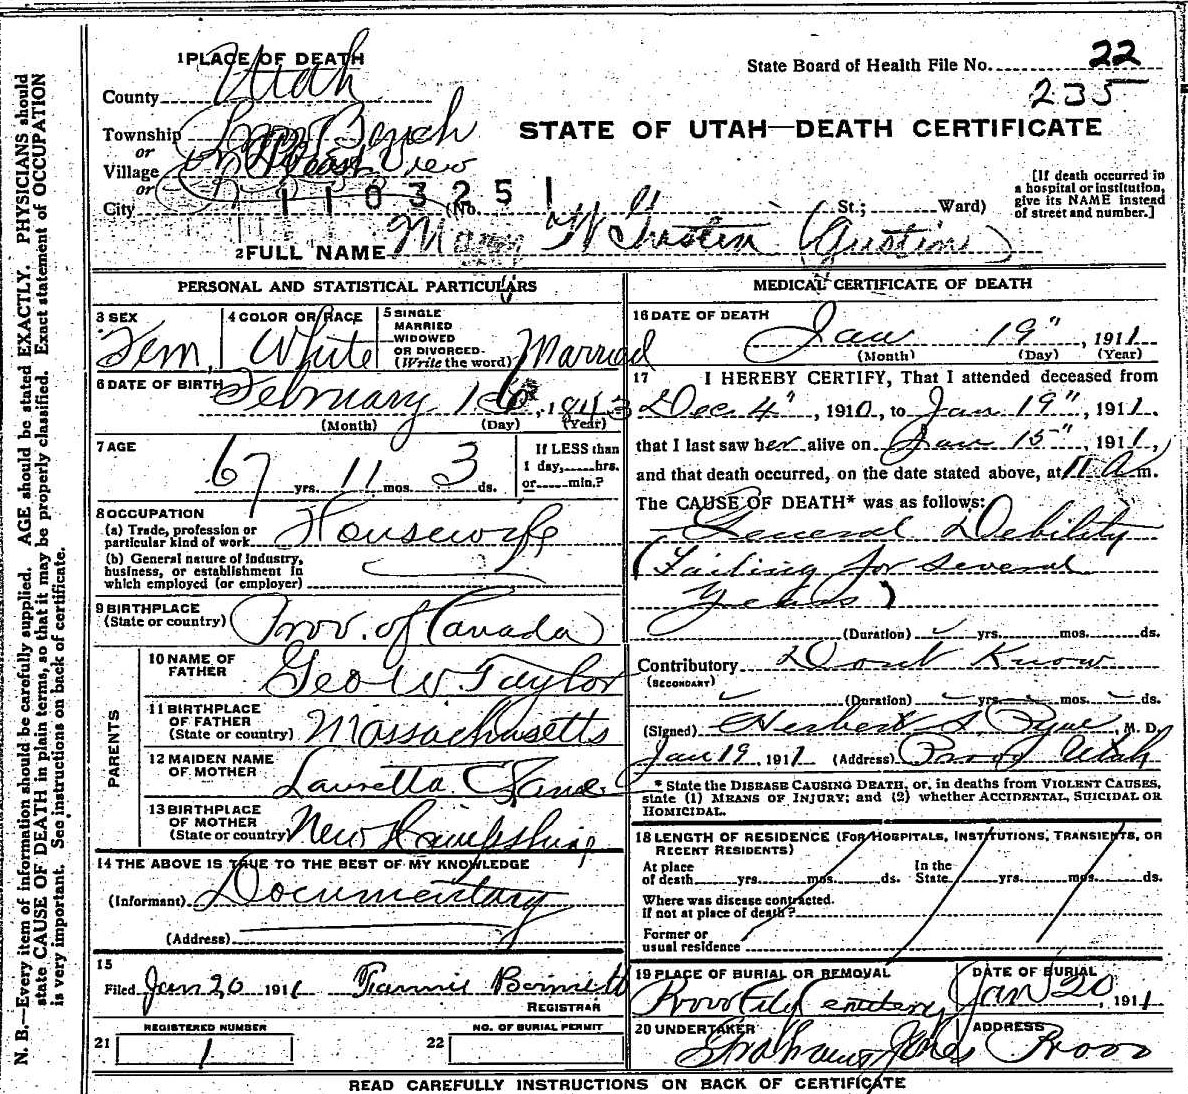 N. B.—Every item of information should be carefully supplied. AGE should be stated EXACTLY. PHYSICIANS should
state CAUSE OF DEATH in plain terms, so that it may be properly classified. Exact statement of OCCUPATION
is very important. See instructions on back of certificate.
1 PLACE OF DEATH
State Board of Health File No. 22
235
County Utah
Township Bench
or
Village View
or
City
STATE OF UTAH—DEATH CERTIFICATE
[If death occurred in
a hospital or institution,
give its NAME instead
of street and number.]
1103251
(No. St.; Ward)
2 FULL NAME Mary W Gustin (Gustin)
PERSONAL AND STATISTICAL PARTICULARS
3 SEX
Fem.
4 COLOR OR RACE
White
5 SINGLE
MARRIED
WIDOWED
OR DIVORCED
(Write the word) Married
6 DATE OF BIRTH
February 16, 1843
(Month) (Day) (Year)
7 AGE
67 yrs. 11 mos. 3 ds.
If LESS than
1 day, hrs.
or min.?
8 OCCUPATION
(a) Trade, profession or
particular kind of work Housewife
(b) General nature of industry,
business, or establishment in
which employed (or employer)
9 BIRTHPLACE
(State or country) Prov. of Canada
PARENTS
10 NAME OF
FATHER Geo W Taylor
11 BIRTHPLACE
OF FATHER
(State or country) Massachusetts
12 MAIDEN NAME
OF MOTHER Lauretta C
13 BIRTHPLACE
OF MOTHER
(State or country New Hampshire
14 THE ABOVE IS TRUE TO THE BEST OF MY KNOWLEDGE
(Informant) Documentary
(Address)
15
Filed Jan 20 1911 Fannie
REGISTRAR
REGISTERED NUMBER
21 1
NO. OF BURIAL PERMIT
22
MEDICAL CERTIFICATE OF DEATH
16 DATE OF DEATH
Jan 19", 1911
(Month) (Day) (Year)
17 I HEREBY CERTIFY, That I attended deceased from
Dec. 4", 1910, to Jan 19", 1911.
that I last saw her alive on Jan 15", 1911,
and that death occurred, on the date stated above, at 11 A m.
The CAUSE OF DEATH* was as follows:
General Debility
(Failing for several
years)
(Duration) yrs. mos. ds.
Contributory Dont Know
(SECONDARY)
(Duration) yrs. mos. ds.
(Signed) Herbert S. Pyne, M. D.
Jan 19, 1911 (Address) Provo Utah
* State the DISEASE CAUSING DEATH, or, in deaths from VIOLENT CAUSES,
state (1) MEANS OF INJURY; and (2) whether ACCIDENTAL, SUICIDAL OR
HOMICIDAL.
18 LENGTH OF RESIDENCE (FOR HOSPITALS, INSTITUTIONS, TRANSIENTS, OR
RECENT RESIDENTS)
At place
of death yrs. mos. ds.
In the
State yrs. mos. ds.
Where was disease contracted.
If not at place of death?
Former or
usual residence
19 PLACE OF BURIAL OR REMOVAL
Provo City Cemetery
DATE OF BURIAL
Jan 20, 1911
20 UNDERTAKER
Jones
ADDRESS
Provo
READ CAREFULLY INSTRUCTIONS ON BACK OF CERTIFICATE